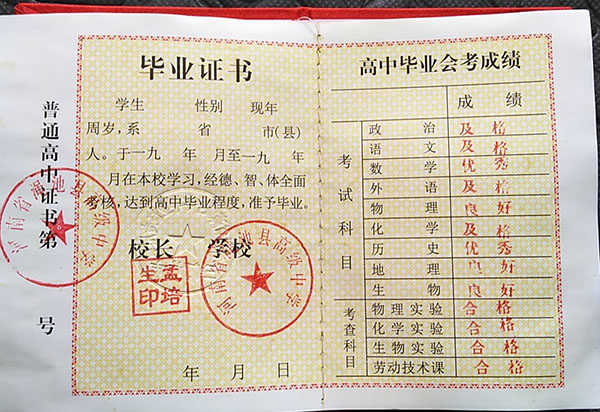 普通高中证书第 号
毕业证书
学生 性别 现年
周岁,系 省 市(县)
人。于一九 年 月至一九 年
月在本校学习,经德、智、体全面
考核,达到高中毕业程度,准予毕业。
校长 学校
孟培生印
河南省渑池县高级中学
河南省渑池县高级中学
年 月 日
高中毕业会考成绩
成 绩
考试科目
政 治 及 格
语 文 及 格
数 学 优 秀
外 语 及 格
物 理 良 好
化 学 及 格
历 史 优 秀
地 理 良 好
生 物 良 好
考查科目
物理实验 合 格
化学实验 合 格
生物实验 合 格
劳动技术课 合 格